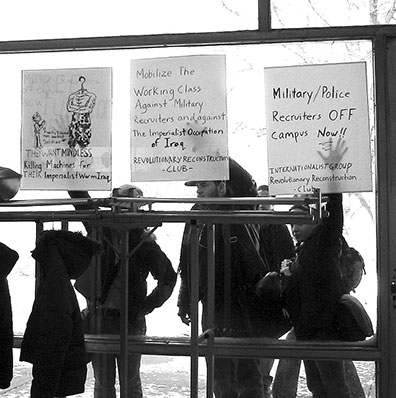 THEY WANT MINDLESS
Killing Machines for
THEIR Imperialist War in Iraq
Mobilize The
Working Class
Against Military
Recruiters and against
The Imperialist Occupation
of Iraq
REVOLUTIONARY RECONSTRUCTION
-CLUB-
Military/Police
Recruiters OFF
Campus Now!!
INTERNATIONALIST GROUP
Revolutionary Reconstruction
-Club-